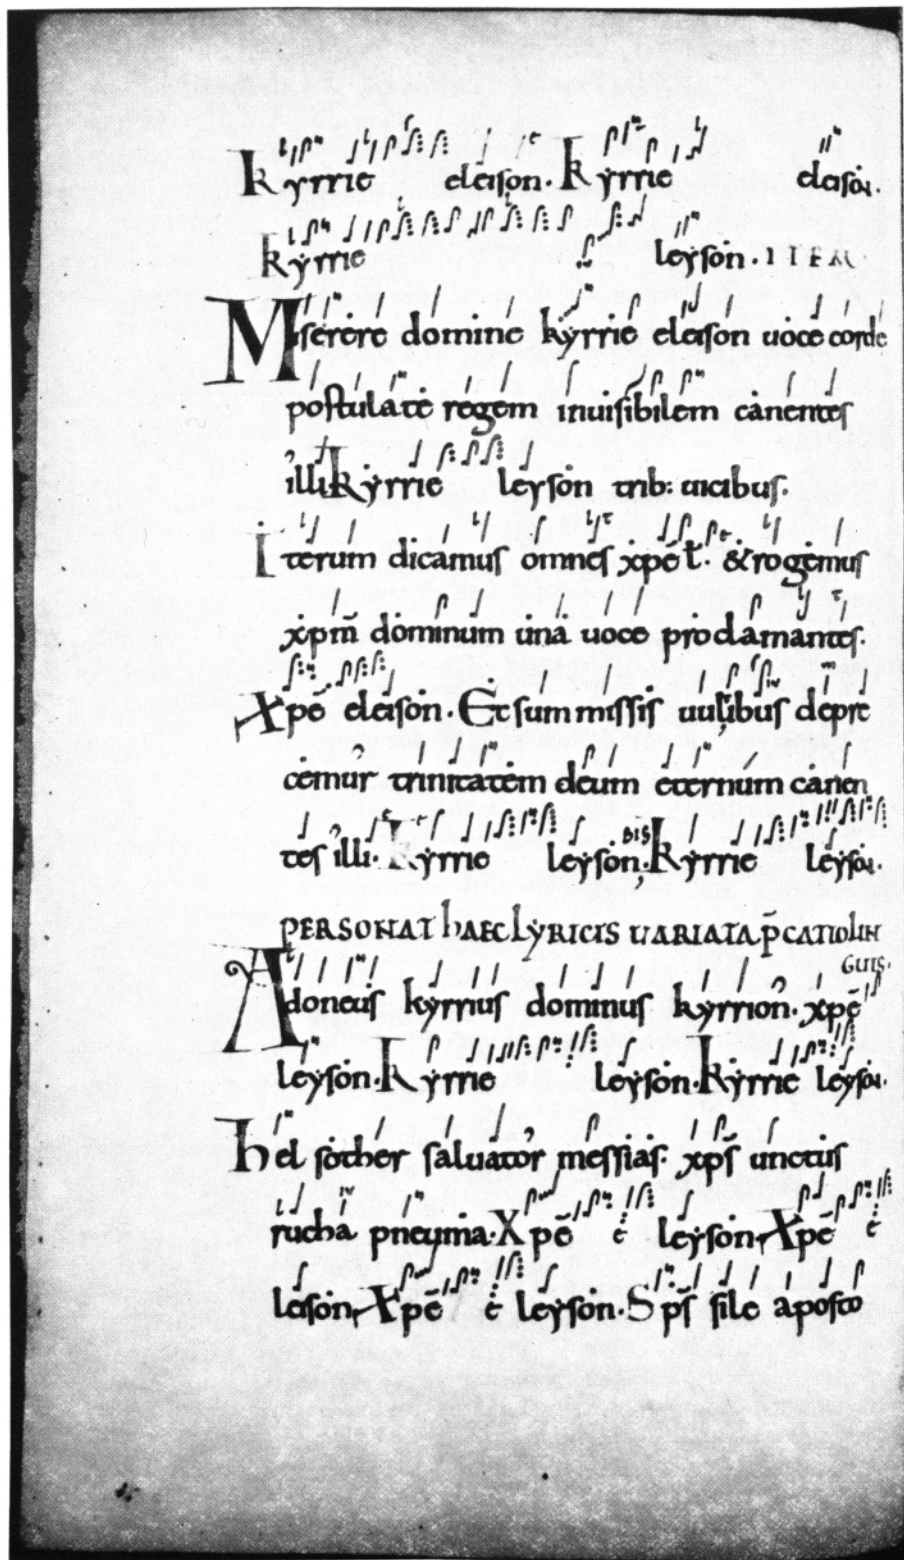 Kyrrie eleison. Kyrrie eleison.
Kyrrie leyson. ITEM
Miserere domine kyrrie eleison uoce corde
postulate regem inuisibilem canentes
illi Kyrrie leyson trib: uicibus.
Iterum dicamus omnes xpē l. & rogemus
xpm̄ dominum una uoce proclamantes.
Xpē eleison. Et summissis uultibus depre
cemur trinitatem deum eternum canen
tes illi. Kyrrie leyson. BIS Kyrrie leyson.
PERSONAT hAEC LYRICIS UARIATA p̄CATIO LIN
GUIS.
Adoneus kyrrius dominus kyrrion. xpē
leyson. Kyrrie leyson. Kyrrie leyson.
hel sother saluator messias. xps̄ unctus
rucha pneuma. Xpē e leyson. Xpē e
leison. Xpē e leyson. Sps̄ sile aposto